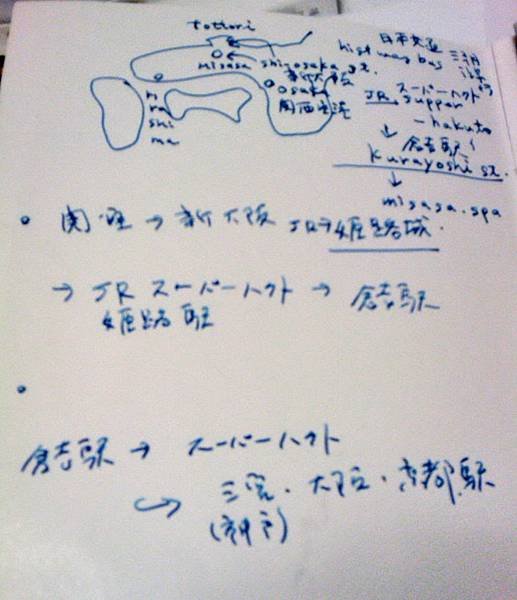 tottori
misasa
shin-osaka st.
新大阪
osaka
関西空港
hi
ro
shi
ma
日本交通
highway bus
JR スーパーハクト
supper
-hakuto
↓ 倉吉駅
kurayoshi st.
↓
misasa.spa
• 関空 → 新大阪 JRデ姫路城.
→ JR スーパーハクト → 倉吉駅
姫路駅
•
倉吉駅 → スーパーハクト
三宮・大阪・京都駅
(神戸)